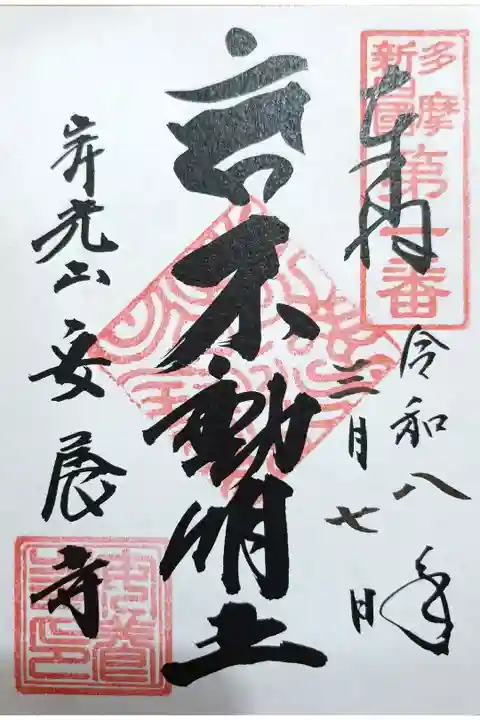 多摩
新四國
第一番
奉納
令和八年
三月七日
不動明王
光山安養寺